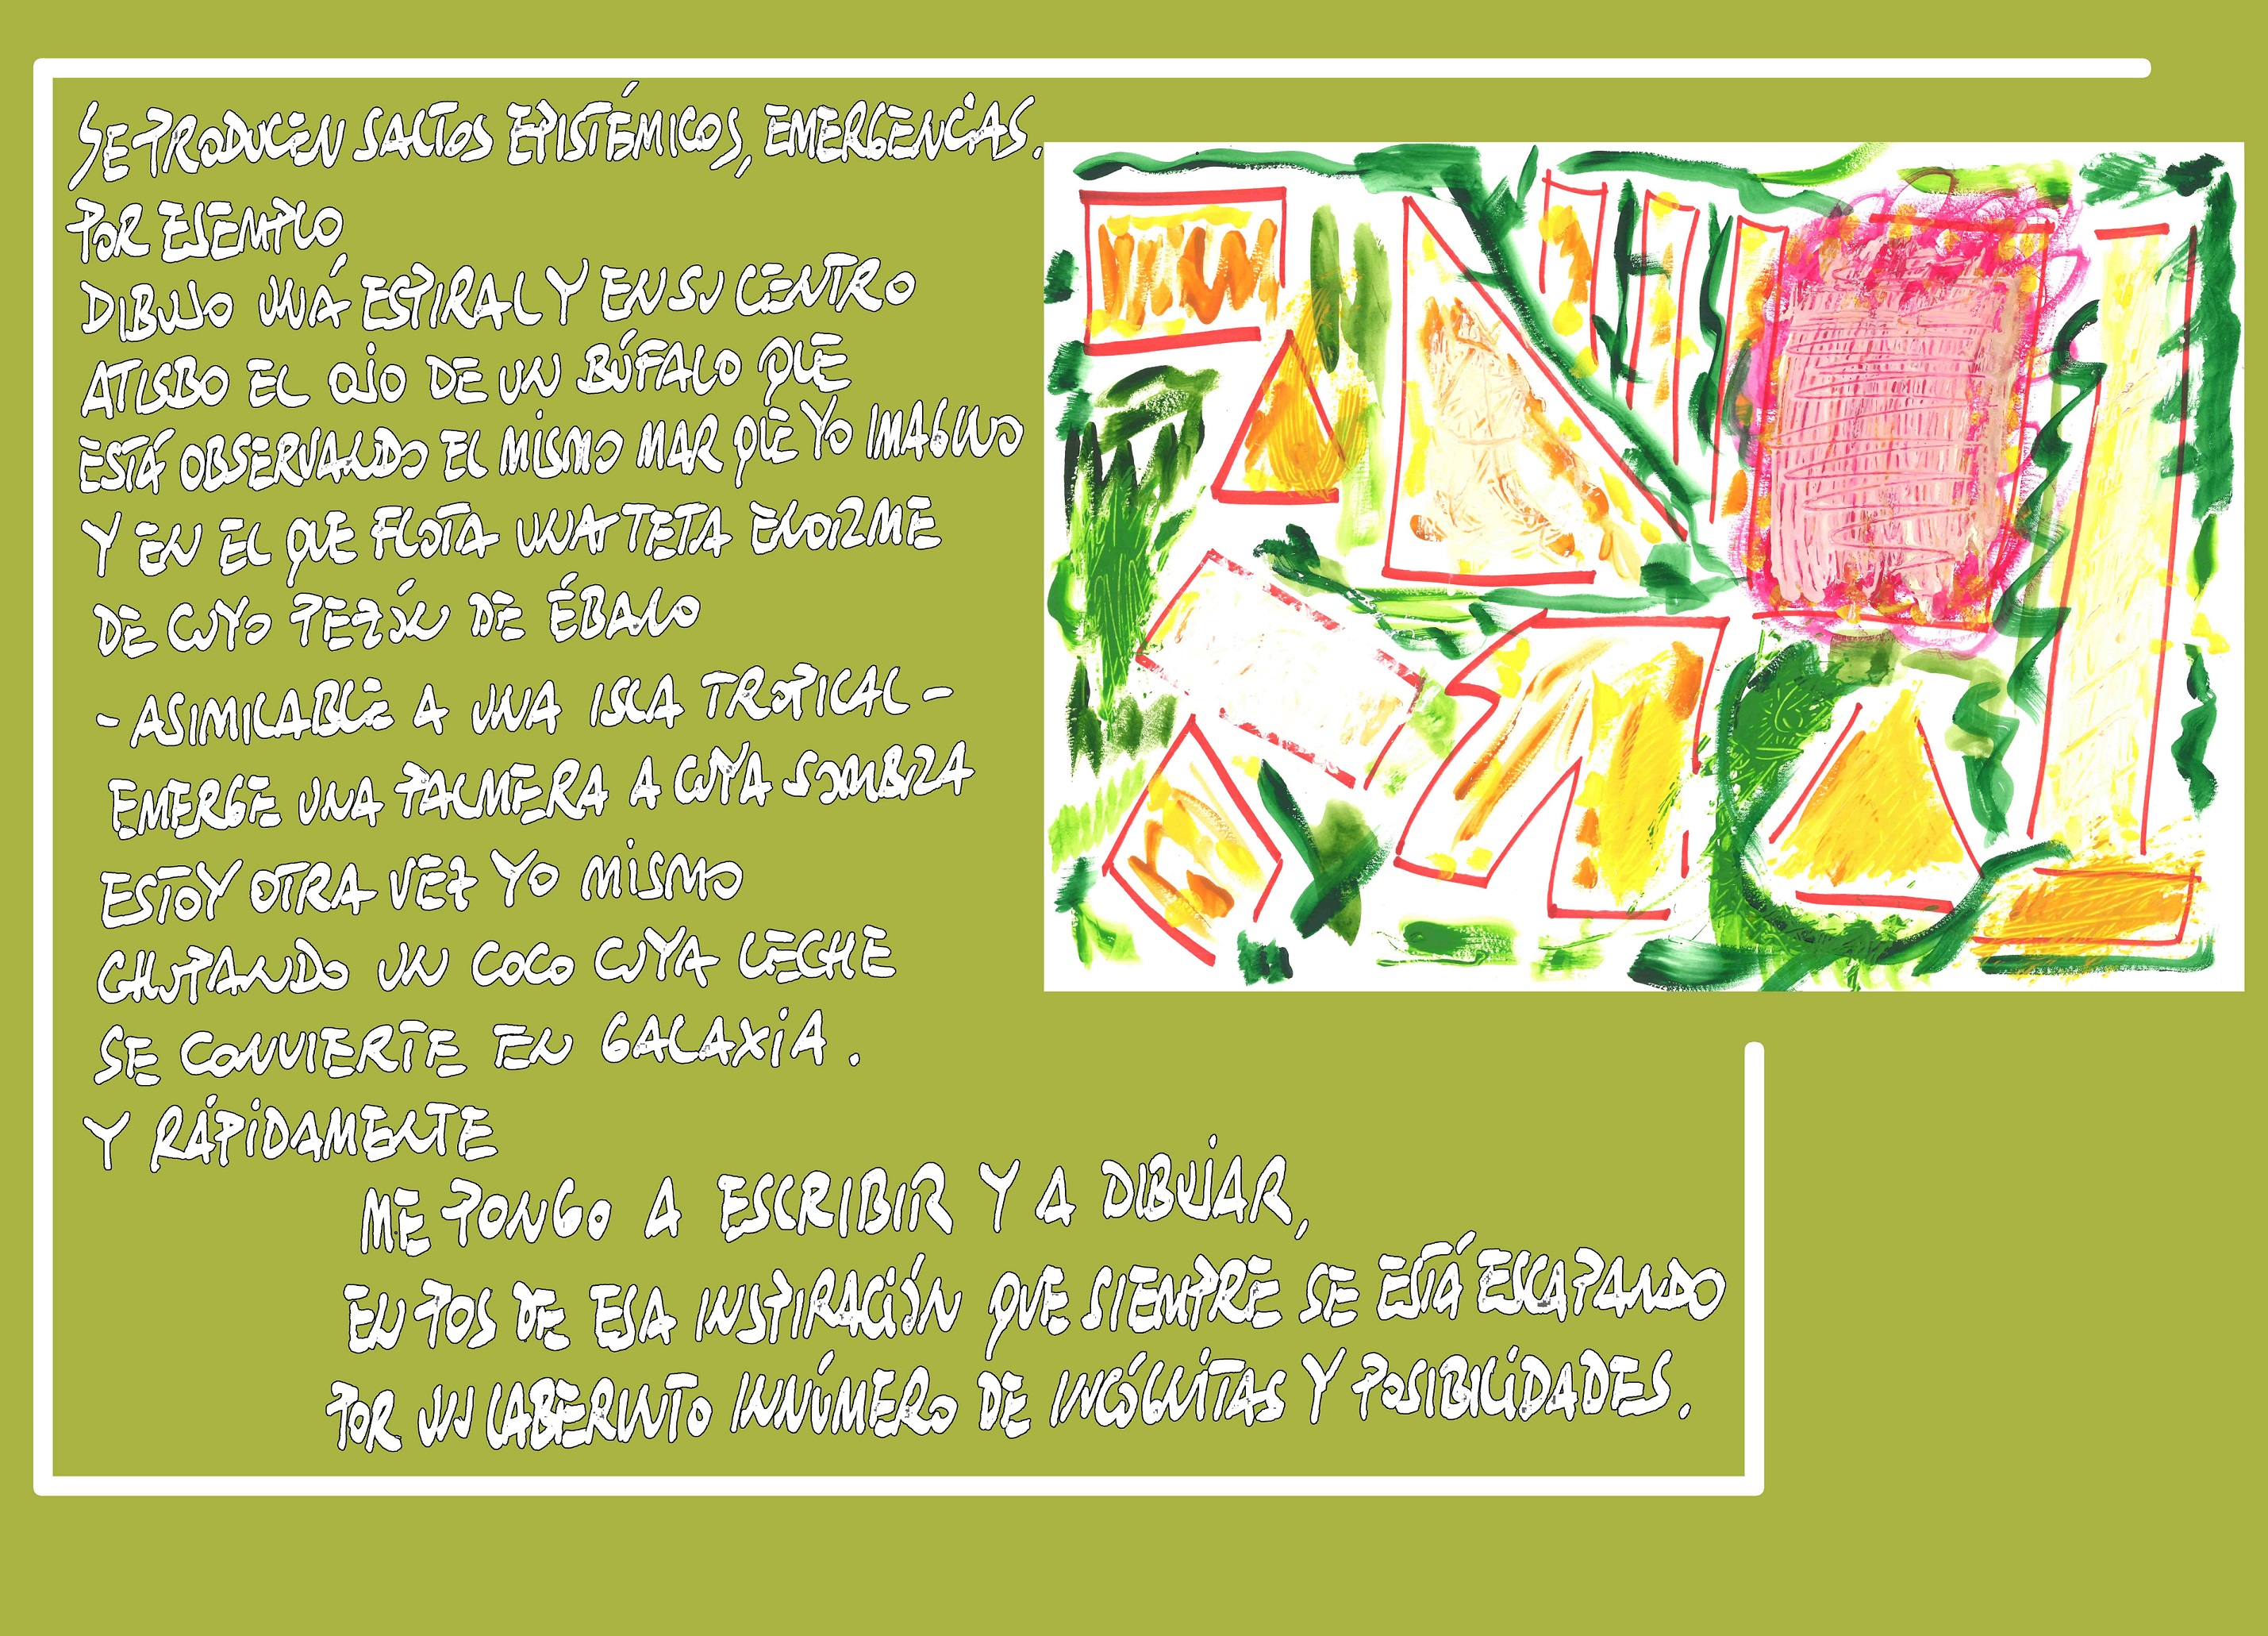 SE PRODUCEN SALTOS EPISTÉMICOS, EMERGENCIAS.
POR EJEMPLO
DIBUJO UNA ESPIRAL Y EN SU CENTRO
ATISBO EL OJO DE UN BÚFALO QUE
ESTÁ OBSERVANDO EL MISMO MAR QUE YO IMAGINO
Y EN EL QUE FLOTA UNA TETA ENORME
DE CUYO PEZÓN DE ÉBANO
- ASIMILABLE A UNA ISLA TROPICAL -
EMERGE UNA PALMERA A CUYA SOMBRA
ESTOY OTRA VEZ YO MISMO
CHUPANDO UN COCO CUYA LECHE
SE CONVIERTE EN GALAXIA.
Y RÁPIDAMENTE
ME PONGO A ESCRIBIR Y A DIBUJAR,
EN POS DE ESA INSPIRACIÓN QUE SIEMPRE SE ESTÁ ESCAPANDO
POR UN LABERINTO INNÚMERO DE INCÓGNITAS Y POSIBILIDADES.